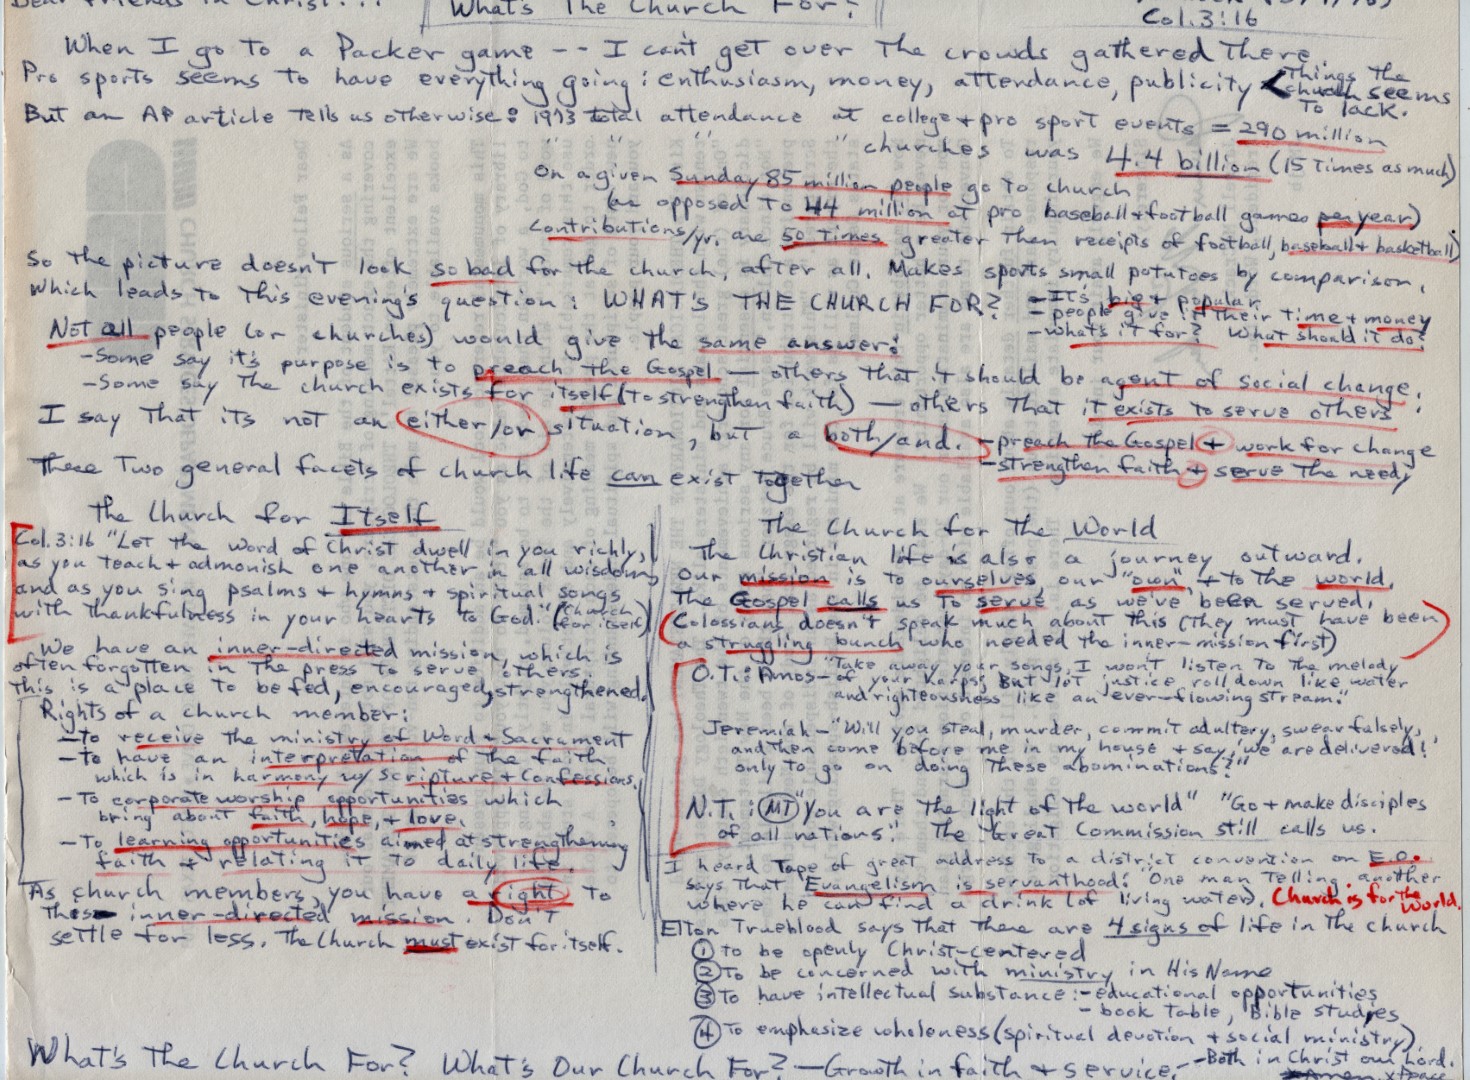 Dear Friends in Christ...
What's The Church For?
Col. 3:16
When I go to a Packer game -- I can't get over the crowds gathered there.
Pro sports seems to have everything going: enthusiasm, money, attendance, publicity < Things the church seems to lack.
But an AP article tells us otherwise: 1973 total attendance at college + pro sport events = 290 million
" " " " churches was 4.4 billion (15 times as much)
On a given Sunday 85 million people go to church
(as opposed to 44 million at pro baseball + football games per year)
Contributions/yr. are 50 times greater then receipts of football, baseball + basketball)
So the picture doesn't look so bad for the church, after all. Makes sports small potatoes by comparison.
Which leads to this evening's question: WHAT'S THE CHURCH FOR?
- It's big + popular
- people give it their time + money
- what's it for? What should it do?
Not all people (or churches) would give the same answer:
- Some say it's purpose is to preach the Gospel — others that it should be agent of social change.
- Some say the church exists for itself (to strengthen faith) — others that it exists to serve others.
I say that its not an either/or situation, but a both/and.
- preach the Gospel + work for change
- strengthen faith + serve the need,
These two general facets of church life can exist together
The Church for Itself
Col. 3:16 "Let the word of Christ dwell in you richly,
as you teach + admonish one another in all wisdom,
and as you sing psalms + hymns + spiritual songs
with thankfulness in your hearts to God." (Church for itself)
We have an inner-directed mission, which is
often forgotten in the press to serve others.
This is a place to be fed, encouraged, strengthened.
Rights of a church member:
- To receive the ministry of Word + Sacrament
- To have an interpretation of the faith
which is in harmony w/ Scripture + Confessions.
- To corporate worship opportunities which
bring about faith, hope, + love.
- To learning opportunities aimed at strengthening
faith + relating it to daily life.
As church members, you have a right to
these inner-directed mission. Don't
settle for less. The Church must exist for itself.
The Church for the World
The Christian life is also a journey outward.
Our mission is to ourselves, our "own" + to the world.
The Gospel calls us to serve as we've been served.
(Colossians doesn't speak much about this (they must have been
a struggling bunch who needed the inner-mission first)
O.T.: Amos - "Take away your songs, I won't listen to the melody
of your harps; But let justice roll down like water
and righteousness like an ever-flowing stream."
Jeremiah - "Will you steal, murder, commit adultery, swear falsely,
and then come before me in my house + say, 'we are delivered!'
only to go on doing these abominations?"
N.T.: MT "You are the light of the world" "Go + make disciples
of all nations". The Great Commission still calls us.
I heard tape of great address to a district convention on E.O.
says that Evangelism is servanthood: "One man telling another
where he can find a drink (of living water). Church is for the World.
Elton Trueblood says that there are 4 signs of life in the church
1 To be openly Christ-centered
2 To be concerned with ministry in His Name
3 To have intellectual substance: - educational opportunities
- book table, Bible studies
4 To emphasize wholeness (spiritual devotion + social ministry)
What's The Church For? What's Our Church For? — Growth in faith + service, - Both in Christ our Lord.
Amen